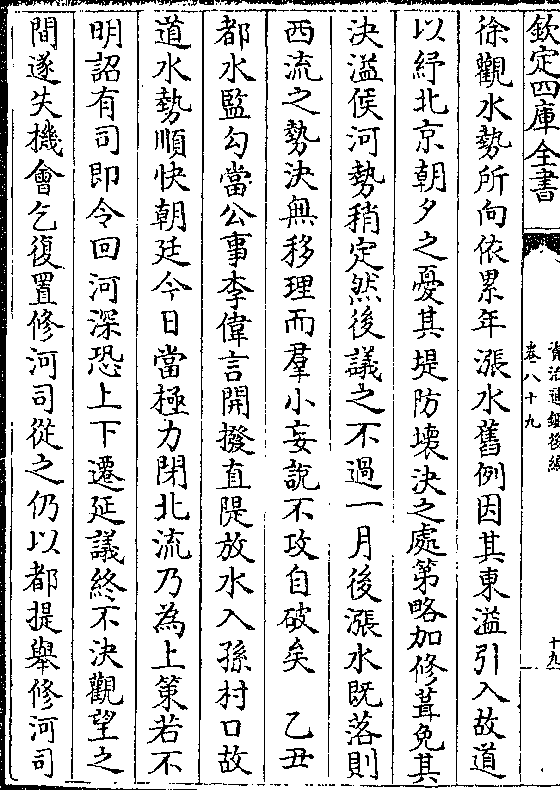 欽定四庫全書
資治通鑑後編
卷八十九
十九
徐觀水勢所向依累年漲水舊例因其東溢引入故道
以紓北京朝夕之憂其堤防壊決之處第略加修葺免其
決溢候河勢稍定然後議之不過一月後漲水既落則
西流之勢決無移理而羣小妄説不攻自破矣　乙丑
都水監勾當公事李偉言開撥直隄放水入孫村口故
道水勢順快朝廷今日當極力閉北流乃為上策若不
明詔有司即令回河深恐上下遷延議終不決觀望之
間遂失機會乞復置修河司從之仍以都提舉修河司